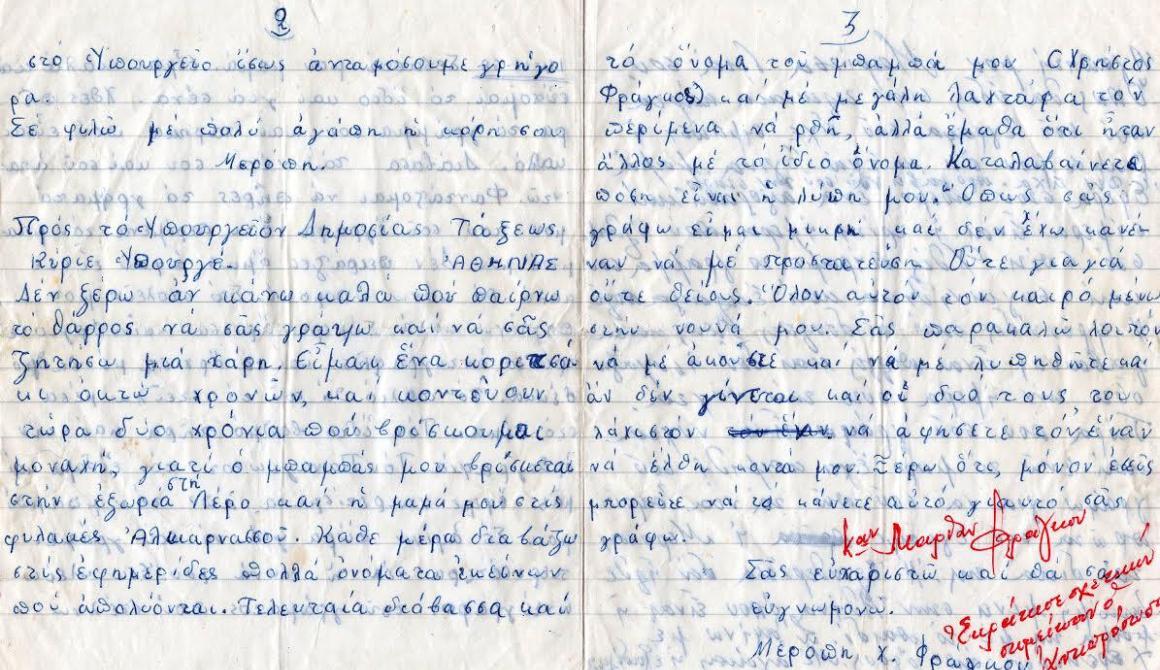 2
στό Ὑπουργεῖο ἴσως ἀνταμόσουμε γρηγο
ρα.
Σέ φιλῶ μέ πολύ ἀγάπη ἡ κόρη σου
Μερόπη.
Πρός τό Ὑπουργεῖον Δημοσίας Τάξεως
Κύριε Ὑπουργέ. ἈΘΗΝΑΣ
Δέν ξέρω ἄν κάνω καλά πού παίρνω
τό θάρρος νά σᾶς γράψω καί νά σᾶς
ζητήσω μιά χάρη. Εἶμαι ἕνα κοριτσά
κι ὀκτώ χρονῶν, και κοντεύουν
τώρα δύο χρόνια πού βρίσκουμαι
μοναχή, γιατί ὁ μπαμπάς μου βρίσκεται
στήν ἐξωρία στή Λέρο και ἡ μαμά μου στίς
φυλακές Ἀλικαρνασσοῦ. Κάθε μέρα διαβάζω
στίς ἐφημερίδες πολλά ὀνόματα ἐκείνων
πού ἀπολύονται. Τελευταία διάβασσα καί
3
τό ὄνομα τοῦ μπαμπά μου (Χρῆστος
Φράγκος) καί μέ μεγάλη λαχτάρα τόν
περίμενα νά ρθῆ, ἀλλά ἔμαθα ὅτι ἦταν
ἄλλος μέ τό ἴδιο ὄνομα. Καταλαβαίνετε
πόση εἶναι ἡ λύπη μου. Ὅπως σᾶς
γράφω εἶμαι μικρή καί δέν ἔχω κανέ-
ναν νά μέ προστατεύση. Οὔτε γιαγιά
οὔτε θείους. Ὅλον αὐτόν τόν καιρό μένω
στήν νουνά μου. Σᾶς παρακαλῶ λοιπόν
νά μέ ἀκούστε καί νά μέ λυπηθῆτε και
ἄν δέν γίνεται καί οἱ δυό τους τοὐ
λάχιστόν νά ἀφήσετε τόν ἕναν
νά ἔλθη κοντά μου. Ξέρω ὅτι μόνον ἐσεῖς
μπορεῖτε νά τό κάνετε αὐτό γι αὐτό σᾶς
γράφω.
Μαρθαν Φράγκου
Σᾶς εὐχαριστῶ καί θά σᾶς
εὐγνωμονῶ.
Μερόπη Χ. Φράγκου